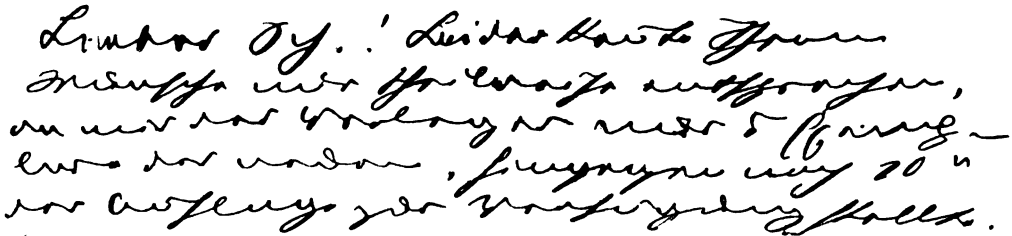 Lieber Sch.! Leider konnte Ihrem
Wunsche nur theilweise entsprechen,
da mir der Verleger nur 5
der reden, hingegen noch 20 "
der Anfänge zur Verfügung stellte.